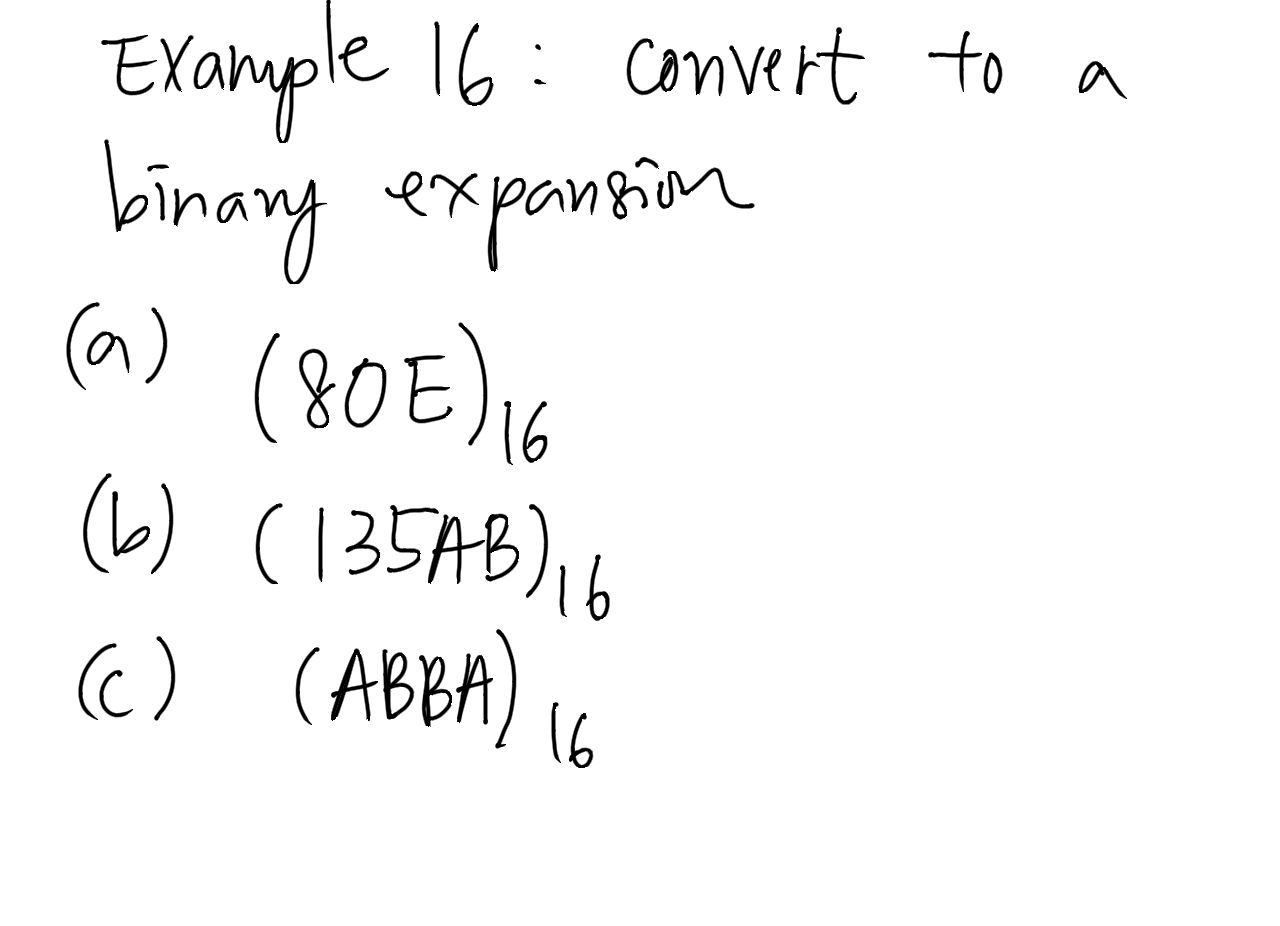 Example 16 : convert to a
binary expansion
(a) (80E)₁₆
(b) (135AB)₁₆
(c) (ABBA)₁₆